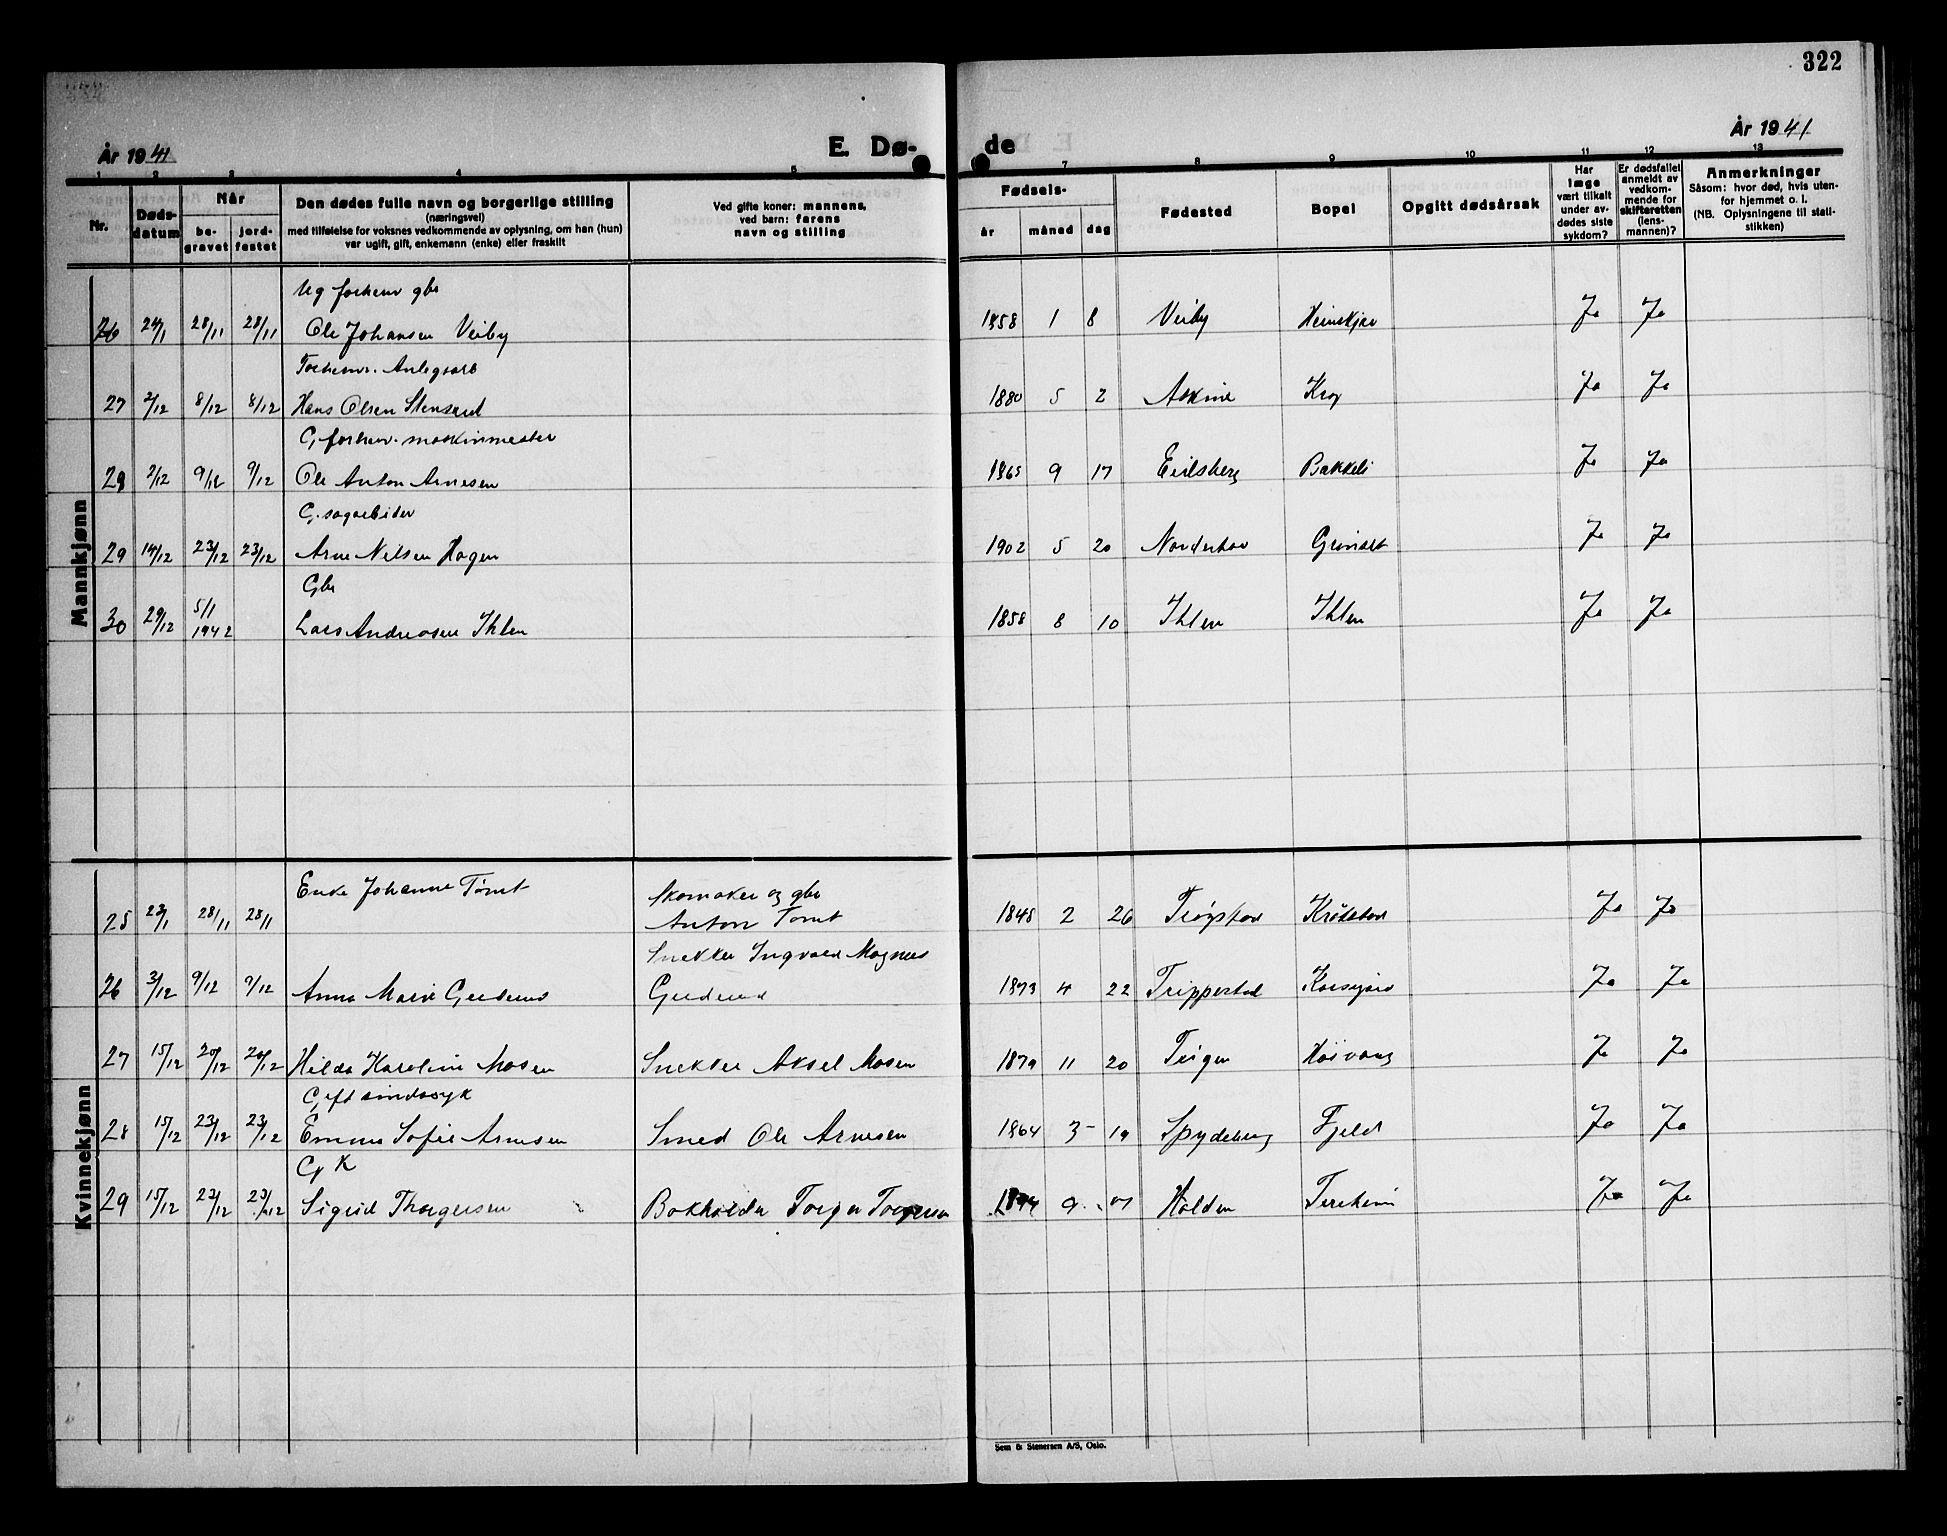 322
År 1941
E. Dø-
de
År 1941
1 2 3 4 5 7 8 9 10 11 12 13
Nr.
Døds-
datum
Når
be-
gravet
jord-
festet
Den dødes fulle navn og borgerlige stilling
(næringsvei)
med tilføielse for voksnes vedkommende av oplysning, om han (hun)
var ugift, gift, enkemann (enke) eller fraskilt
Ved gifte koner: mannens,
ved barn: farens
navn og stilling
Fødsels-
år måned dag
Fødested
Bopel
Opgitt dødsårsak
Har
læge
vært tilkalt
under av-
dødes siste
sykdom?
Er dødsfallet
anmeldt av
vedkom-
mende for
skifteretten
(lens-
mannen)?
Anmerkninger
Såsom: hvor død, hvis uten-
for hjemmet o. l.
(NB. Oplysningene til stati-
stikken)
Mannkjønn
Ug forhenv gbr
26 28/11 28/11 Ole Johansen Veiby 1858 1 8 Veiby Ja Ja
Forhenv.
27 2/12 8/12 8/12 Hans Olsen Stensrud 1880 5 2 Askim Krog Ja Ja
G. forhenv. maskinmester
28 2/12 9/12 9/12 Ole Anton Arnesen 1865 9 17 Eidsberg Bakkeli Ja Ja
G. sagarbeider
29 14/12 23/12 23/12 Arne Nilsen Hagen 1902 5 20 Norderhov Ja Ja
Gbr
30 29/12 5/1 1942 Lars Andreasen Ihlen 1858 8 10 Ihlen Ihlen Ja Ja
Kvinnekjønn
Enke Johanne Tomt Skomaker og gbr
25 28/11 28/11 Anton Tomt 1848 2 26 Trøgstad Ja Ja
Snekker Ingvald Magnus
26 3/12 9/12 9/12 Anna Marie Guderud Guderud 1873 4 22 Trippestad Ja Ja
27 15/12 20/12 20/12 Hilda Karoline Mosen Snekker Aksel Mosen 1879 11 20 Ja Ja
Gift sindssyk
28 15/12 23/12 23/12 Emma Sofie Arnesen Smed Ole Arnesen 1864 3 19 Spydeberg Fjeld Ja Ja
G K
29 15/12 23/12 23/12 Sigrid Thorgersen Bokholder Torger Torgersen 9 Halden Ja Ja
Sem & Stenersen A/S, Oslo.